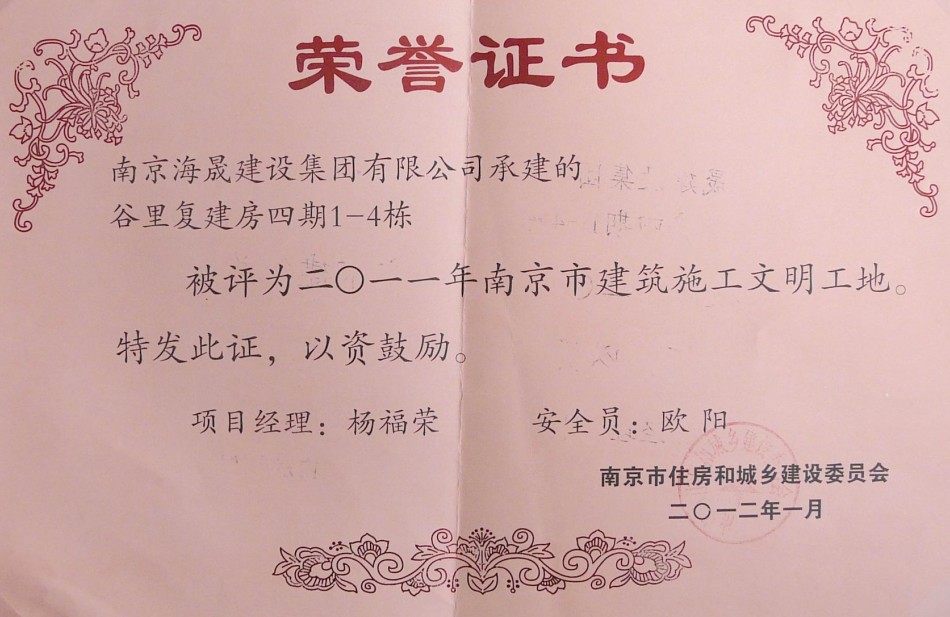 荣誉证书
南京海晟建设集团有限公司承建的
谷里复建房四期1-4栋
被评为二〇一一年南京市建筑施工文明工地。
特发此证，以资鼓励。
项目经理：杨福荣 安全员：欧阳
南京市住房和城乡建设委员会
二〇一二年一月